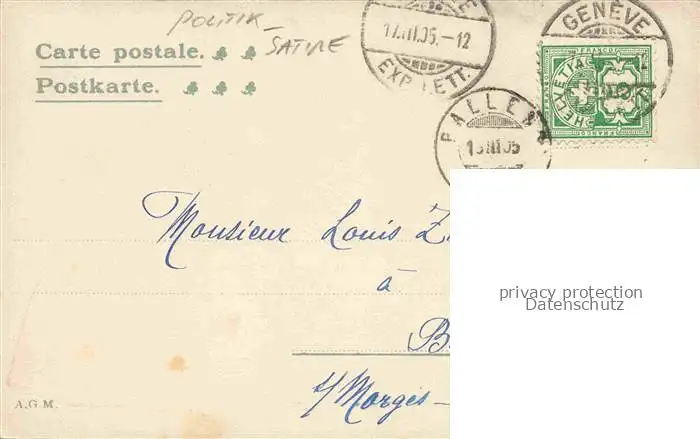 POLITIK -
SATIRE
Carte postale.
Postkarte.
17.III.05.-12
EXP. LETT.
GENÈVE
HELVETIA
FRANCO
FRANCO
13 III 05
Monsieur Louis
à
s/ Morges -
A.G.M.
privacy protection
Datenschutz